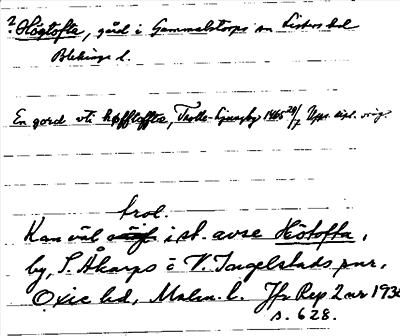 ? Högtofta, gård i Gammalstorps sn Listers hd
Blekinge l.
En gord vti høfftoffte, Trolle-Ljungby 1465 29/7 Upps. dipl. orig.
trol.
Kan väl i st. avse Hötofta,
by, S. Åkarps i V. Ingelstads pnr,
Oxie hd, Malm. l. Jfr Rep 2 nr 193
s. 628.